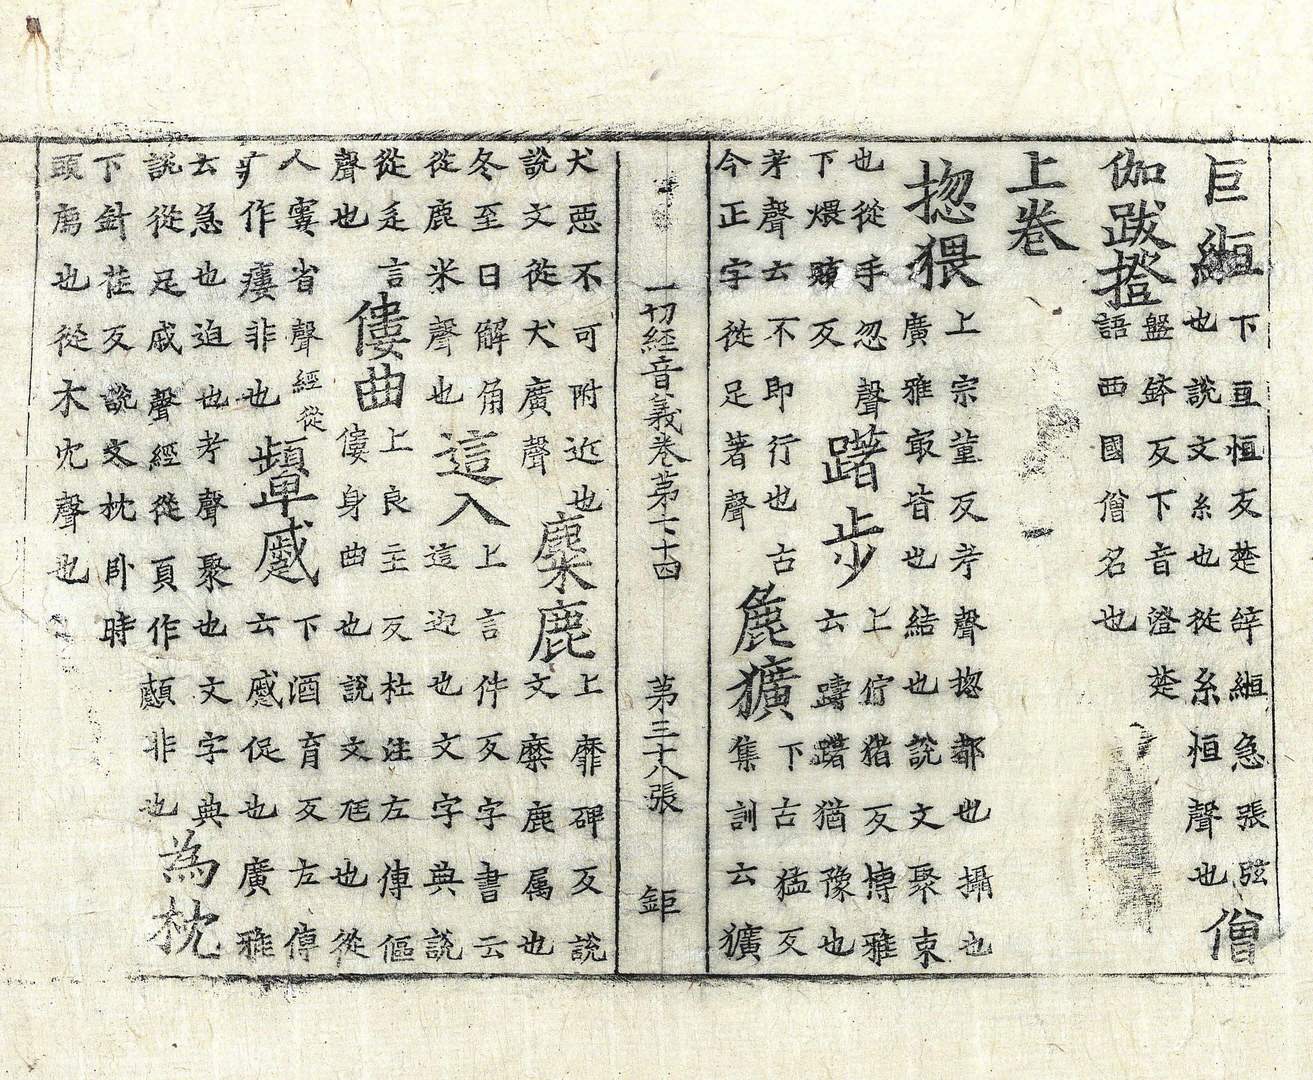 巨緪下亘恒反楚辞緪急張弦
也說文糸也從糸恒聲也僧
伽跋撜盤鉢反下音澄楚
語西國僧名也
上卷
揔猥上宗董反考聲揔都也攝也
廣雅冣皆也結也說文聚束
也從手忽聲
下煨頛反
躇步上佇猪反博雅
云躊躇猶豫也
茅聲云不即行也古
今正字從足著聲
麁獷下古猛反
集訓云獷
一切經音義卷第下十四 第三十八張 鉅
犬惡不可附近也
說文從犬廣聲
麋鹿上靡碑反說
文麋鹿属也
冬至日解角
從鹿米聲也
這入上言件反字書云
這迎也文字典說
從辵言
聲也
僂曲上良主反杜注左傳傴
僂身曲也說文尫也從
人寠省聲經從
疒作瘻非也
顰蹙下酒育反左傳
云蹙促也廣雅
云急也迫也考聲聚也文字典
說從足戚聲經從頁作顣非也
為枕
下針荏反說文枕卧時
頭廌也從木冘聲也